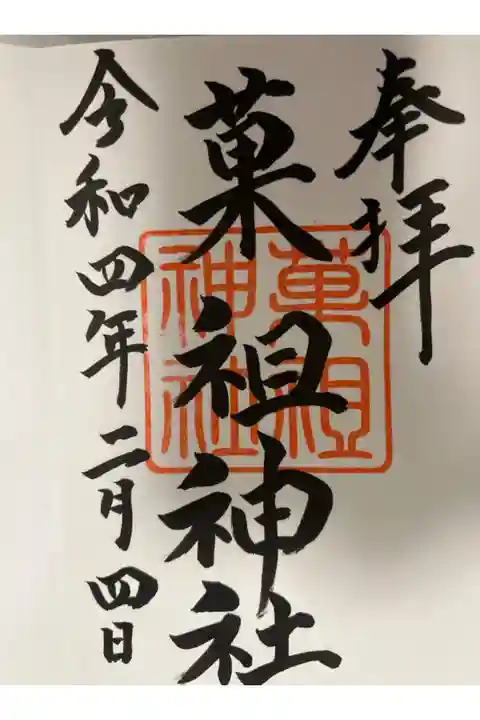 奉拝
菓祖神社
令和四年二月四日
菓祖
神社